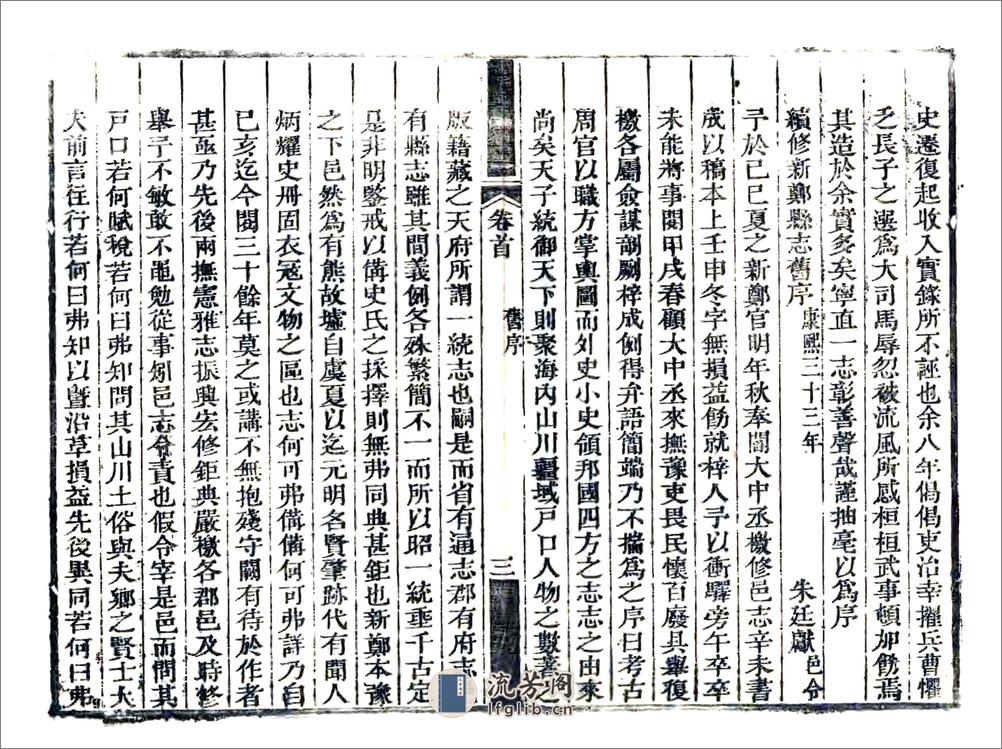 史遷復起收入實錄所不誣也余八年偈偈吏治幸擢兵曹懼
乏長子之選爲大司馬辱忽被流風所感桓桓武事頓加飭焉
其造於余實多矣寧直一志彰善聲哉謹抽毫以爲序
續修新鄭縣志舊序 康熙三十三年 朱廷獻 邑令
予於己巳夏之新鄭官明年秋奉閻大中丞檄修邑志辛未書
歲以稿本上壬申冬字無損益飭就梓人予以衝驛旁午卒卒
未能將事閱甲戌春顧大中丞來撫豫吏畏民懷百廢具舉復
檄各屬僉謀剞劂梓成例得弁語簡端乃不揣爲之序曰考古
周官以職方掌輿圖而外史小史領邦國四方之志志之由來
尚矣天子統御天下則聚海內山川疆域戸口人物之數著之
卷首 舊序 三
版籍藏之天府所謂一統志也嗣是而省有通志郡有府志
有縣志雖其間義例各殊繁簡不一而所以昭一統垂千古定
是非明鑒戒以備史氏之採擇則無弗同典甚鉅也新鄭本豫
之下邑然爲有熊故墟自虞夏以迄元明名賢肇跡代有聞人
炳耀史冊固衣冠文物之區也志何可弗備備何可弗詳乃自
已亥迄今閱三十餘年莫之或講不無抱殘守闕有待於作者
甚亟乃先後兩撫憲雅志振興宏修鉅典嚴檄各郡邑及時修
舉予不敏敢不黽勉從事芻邑志令責也假令宰是邑而問其
戸口若何賦稅若何曰弗知問其山川土俗與夫鄉之賢士大
夫前言往行若何曰弗知以暨沿革損益先後異同若何曰弗
流芳閣
lfglib.cn